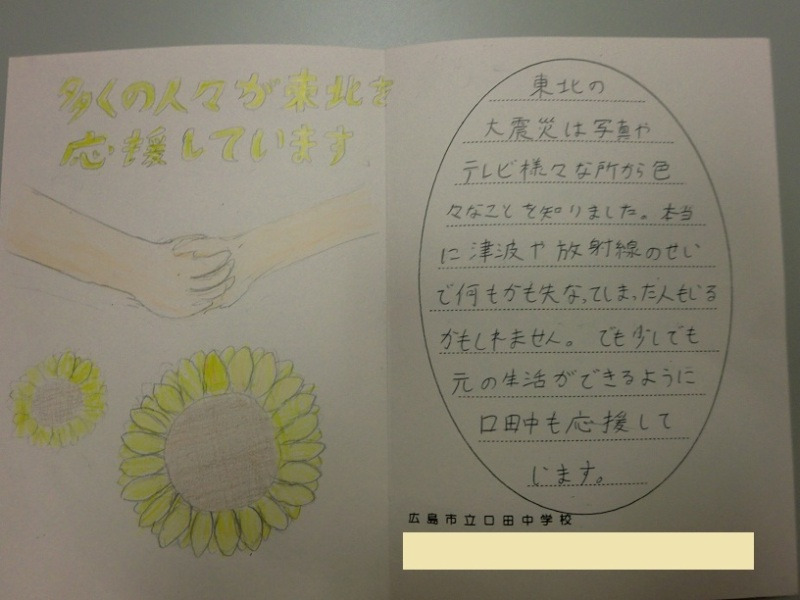 多くの人々が東北を
応援しています
東北の
大震災は写真や
テレビ様々な所から色
々なことを知りました。本当
に津波や放射線のせい
で何もかも失なってしまった人もいる
かもしれません。でも少しでも
元の生活ができるように
口田中も応援して
います。
広島市立口田中学校